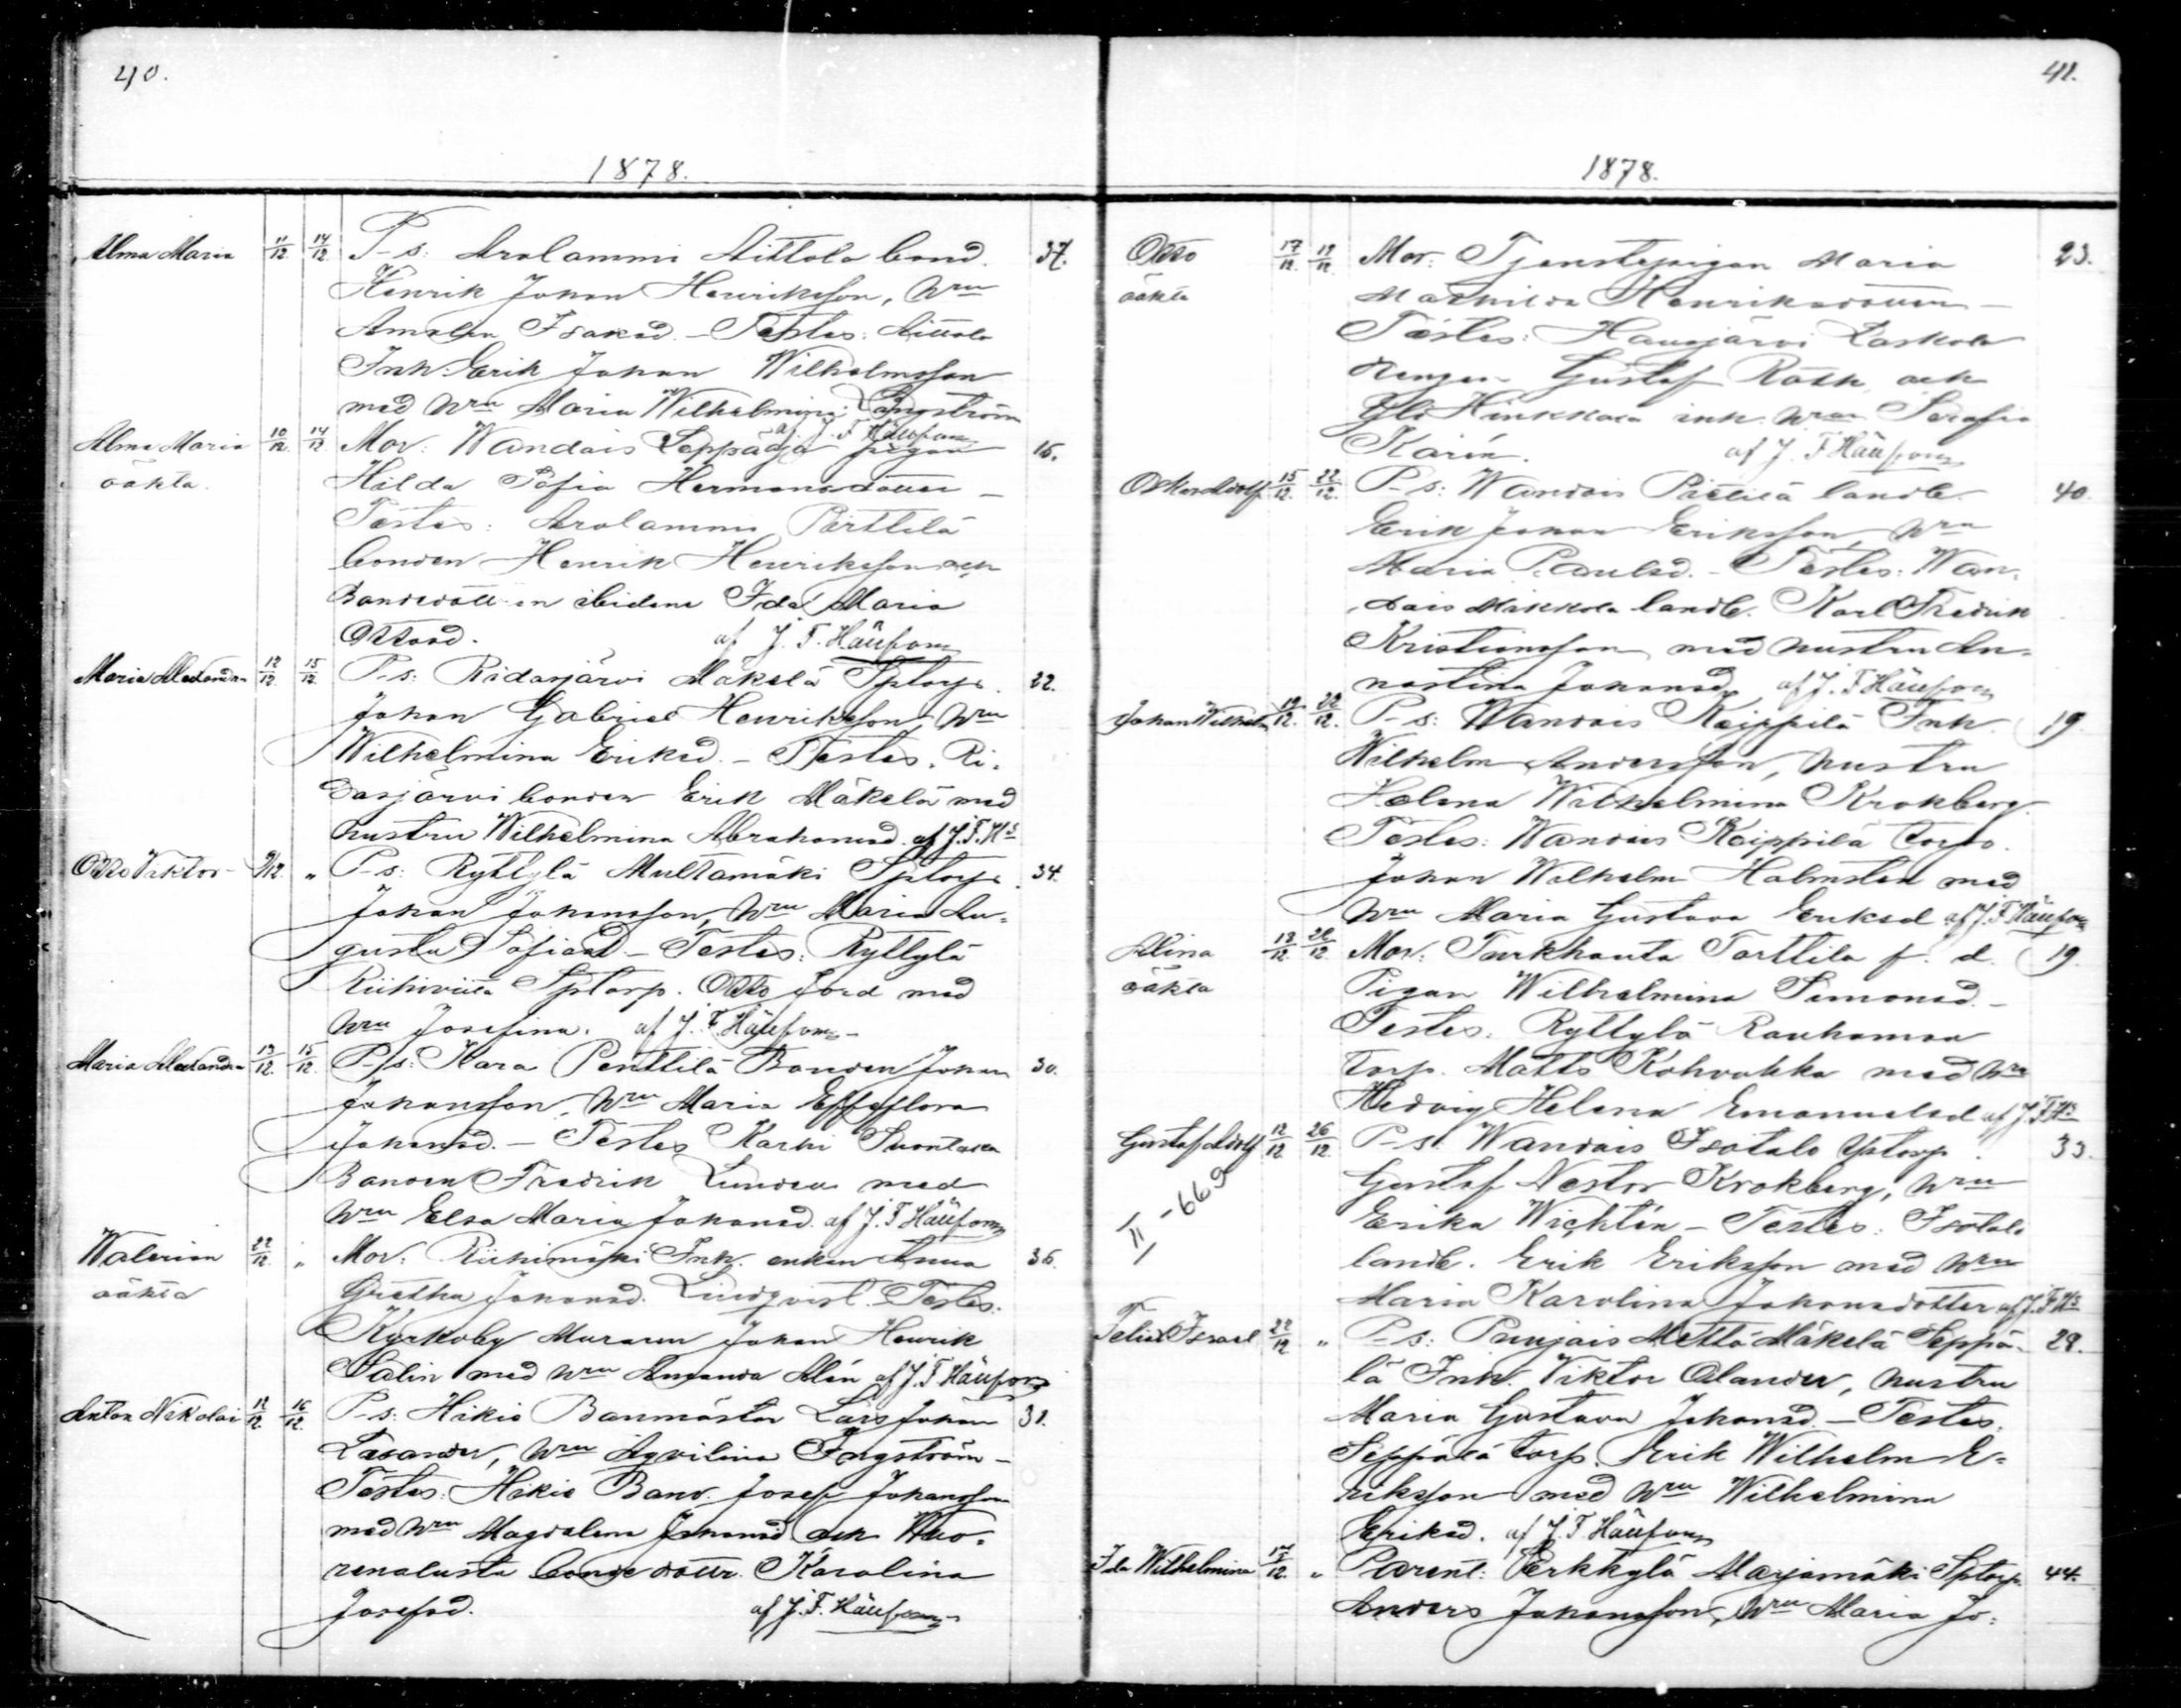 40.
1878.
Alma Maria 11/12 14/12 P-s: Arolammi Aittola bond. 37.
Henrik Johan Henriksson, Hru
Amalia Isaksd. - Testes: Aittola
Inh. Erik Johan Wilhelmsson
med Hru Maria Wilhelmina Långström
af J. F. Häufom
Alma Maria 10/12 14/12 Mor: Wandais Seppä pigan 16.
oäkta. Hilda Sofia Hermansdotter -
Testes: Arolammi Perttilä
bonden Henrik Henriksson och
Bondedott-en ibidem Ida Maria
Ottosd. af J. F. Häufom
Maria Alexandra 12/12 15/12 P-s: Ridasjärvi Mäkelä Sptorp. 22.
Johan Gabriel Henriksson, Hru
Wilhelmina Eriksd. - Testes: Ri-
dasjärvi bonden Erik Mäkelä med
hustru Wilhelmina Abrahamsd. af J. F. Hs
Otto Viktor 9/12 " P-s: Ryttylä Multamäki Sptorp. 34.
Johan Johansson, Hru Maria Au-
gusta Sofiasd. - Testes: Ryttylä
Sptorp. Otto Ford med
Hru Josefina. af J. F. Häufom
Maria Alexandra 13/12 15/12 P-s: Kara Penttilä Bonden Johan 30.
Johansson, Hru Maria
Johansd. - Testes Karhi Suontaka
Bonden Fredrik Lunden med
Hru Elsa Maria Johansd. af J. F. Häufom
Walerian 22/12 " Mor: Riihimäki Inh. enkan Anna 36.
oäkta Gretha Johansd. Lindqvist. Testes:
Kyrkoby Muraren Johan Henrik
Salin med Hru Amanda Alén af J. F. Häufom
Anton Nikolai 12/12 16/12 P-s: Hikie Banmästar Lars Johan 31.
Lasander, Hru Aqvilina Engström -
Testes: Hikie Banv. Josef Johansson
med Hru Magdalena Johansd. och
bondedottr. Karolina
Josefsd. af J. F. Häufom
41.
1878.
Otto 17/12 19/12 Mor: Tjenstepigan Maria 23.
oäkta Mathilda Henriksdotter -
Testes: Hausjärvi Laskola
drengen Gustaf Roth och
Hinkkala inh. Hru Serafia
Karin. af J. F. Häufom
Oskar Adolf 15/12 22/12 P-s: Wandais landb. 40.
Erik Johan Eriksson, Hru
Maria Paulsd. - Testes: Wan-
dais Mikkola landb. Karl Fredrik
Kristiansson med hustru An-
nastina Johansd. af J. F. Häufom
Johan Wilhelm 19/12 22/12 P-s: Wandais Keippilä Inh. 19
Wilhelm Andersson, hustru
Helena Wilhelmina Krokberg.
Testes: Wandais Keippilä torp.
Johan Wilhelm Holmsten med
Hru Maria Gustava Eriksd. af J. F. Häufom
Alina 18/12 26/12 Mor: Turkhauta Torttila f. d. 19.
oäkta Pigan Wilhelmina Simonsd. -
Testes: Ryttylä Rauhamaa
torp. Matts Kohvakka med Hru
Hedvig Helena Emanuelsd. af J. F. Hs
Gustaf Adolf 12/12 26/12 P-s: Wandais Isotalo sptorp. 33.
II - 669
Gustaf Nestor Krokberg, Hru
Erika Wichtén - Testes: Isotalo
landb. Erik Eriksson med Hru
Maria Karolina Johansdotter af J. F. Hs
Felix Israel 22/12 " P-s: Punjais Mettä-Mäkelä Seppä- 29.
lä Inh. Viktor Olander, hustru
Maria Gustava Johansd. - Testes:
Seppälä torp. Erik Wilhelm E-
riksson med Hru Wilhelmina
Eriksd. af J. F. Häufom
Ida Wilhelmina 17/12 " Parent: Erkkylä Marjamäki Sptorp. 44.
Anders Johansson, Hru Maria Jo-